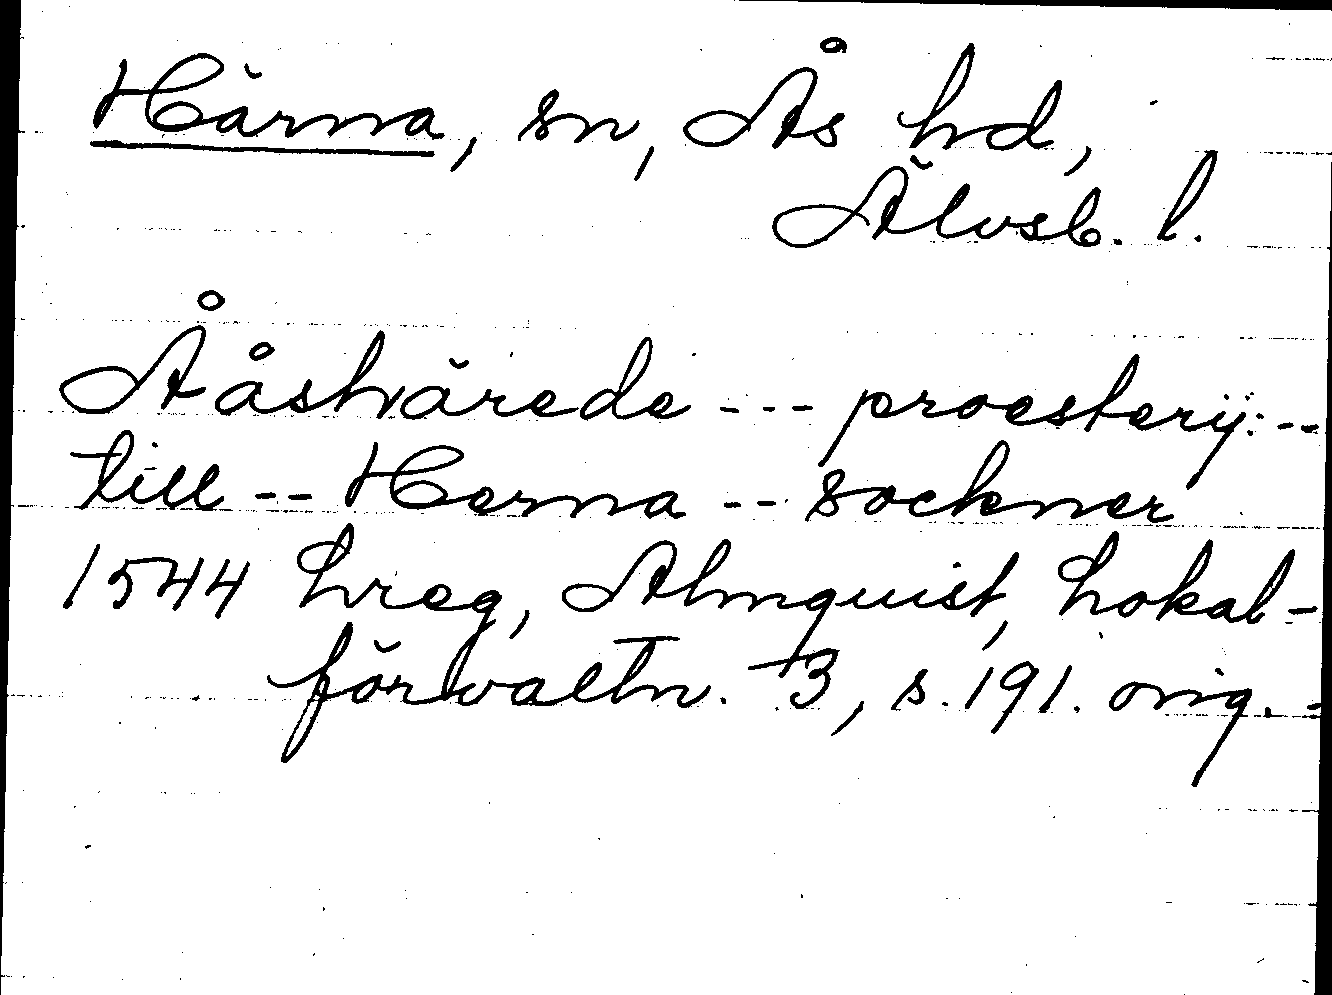 Härna, sn, Ås hd,
Älvsb. l.
Ååshärede --- proesterij: --
till -- Herna -- sockner
1544 Lreg, Almquist, Lokal-
förvaltn. 3, s. 191. orig. -